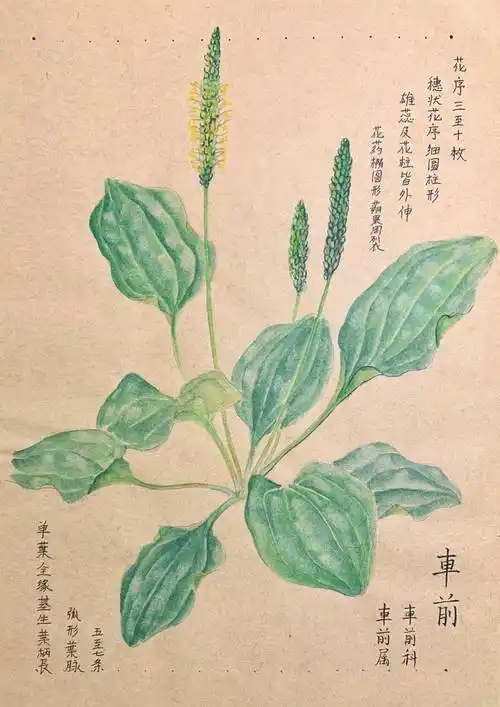 花序三至十枚
穗状花序細圓柱形
雄蕊及花柱皆外伸
花药橢圓形 蒴果周裂
車前
車前科
車前属
五至七条
弧形葉脉
单葉全缘基生葉柄長